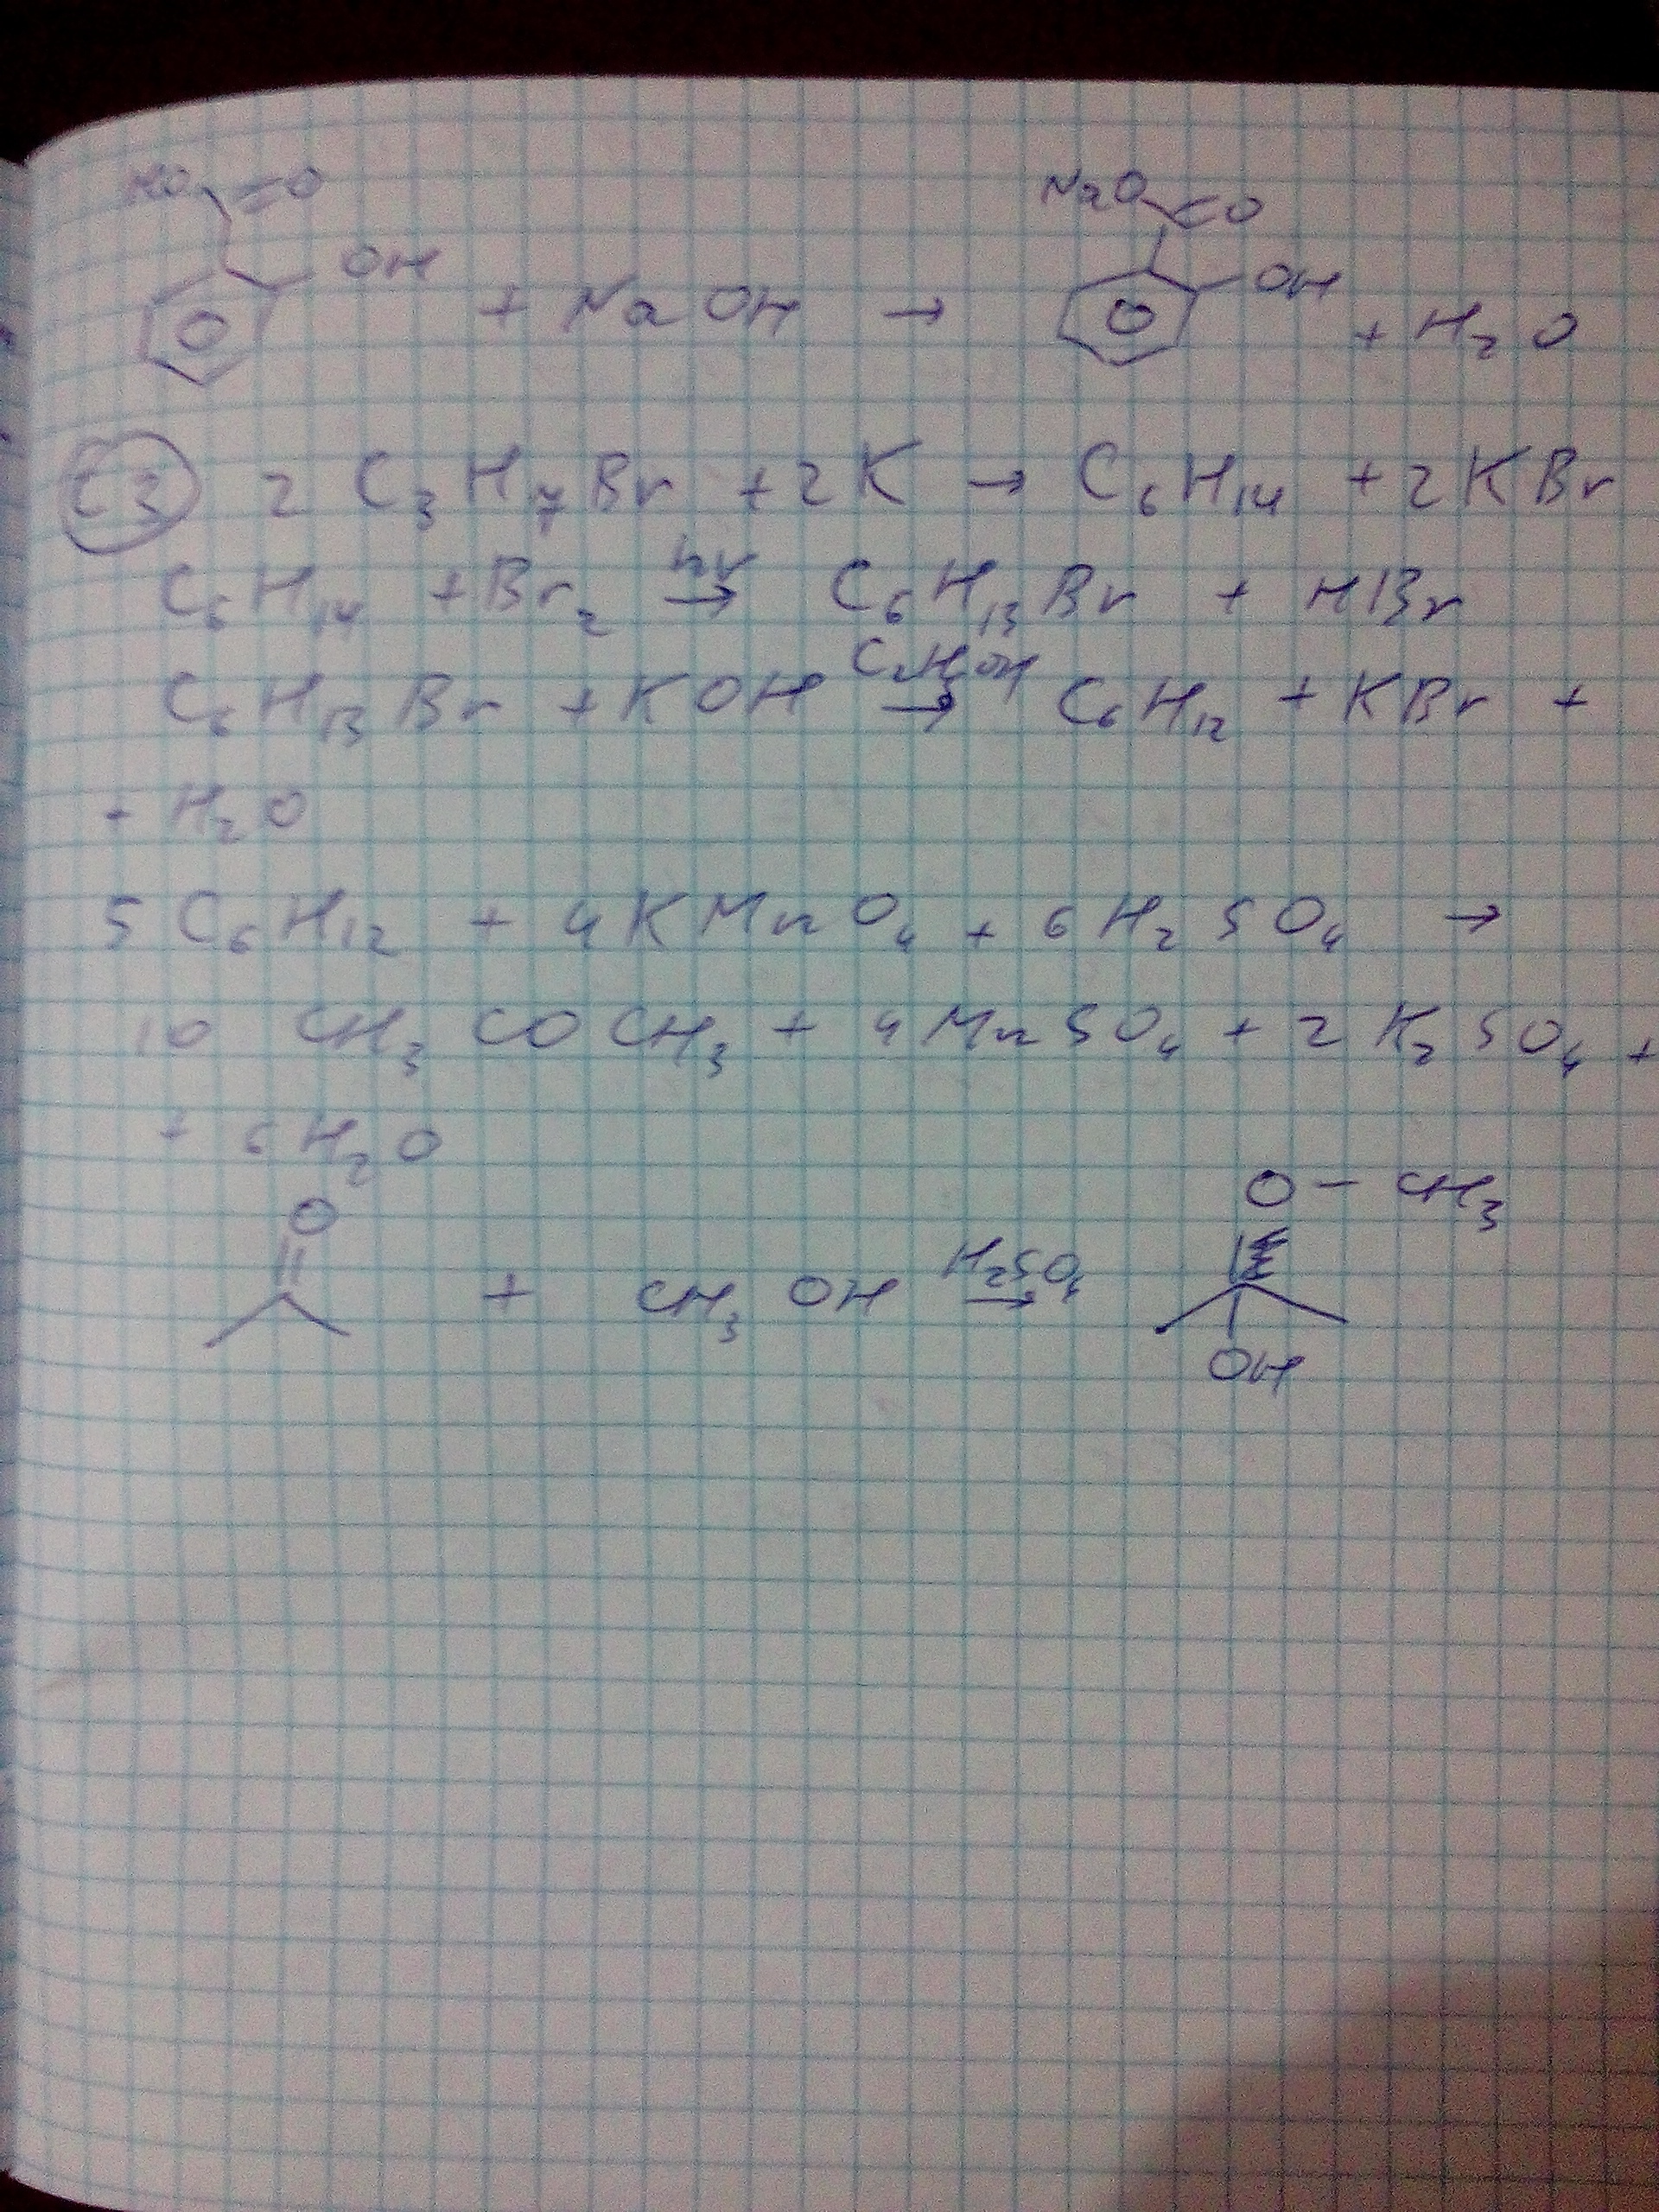 HO O NaO O
OH + NaOH → OH + H₂O
C3 2 C₃H₇Br + 2K → C₆H₁₄ + 2KBr
C₆H₁₄ + Br₂ hν → C₆H₁₃Br + HBr
C₆H₁₃Br + KOH C₂H₅OH → C₆H₁₂ + KBr +
+ H₂O
5 C₆H₁₂ + 4KMnO₄ + 6H₂SO₄ →
10 CH₃COCH₃ + 4MnSO₄ + 2K₂SO₄ +
+ 6H₂O
O O – CH₃
+ CH₃OH H₂SO₄ →
OH